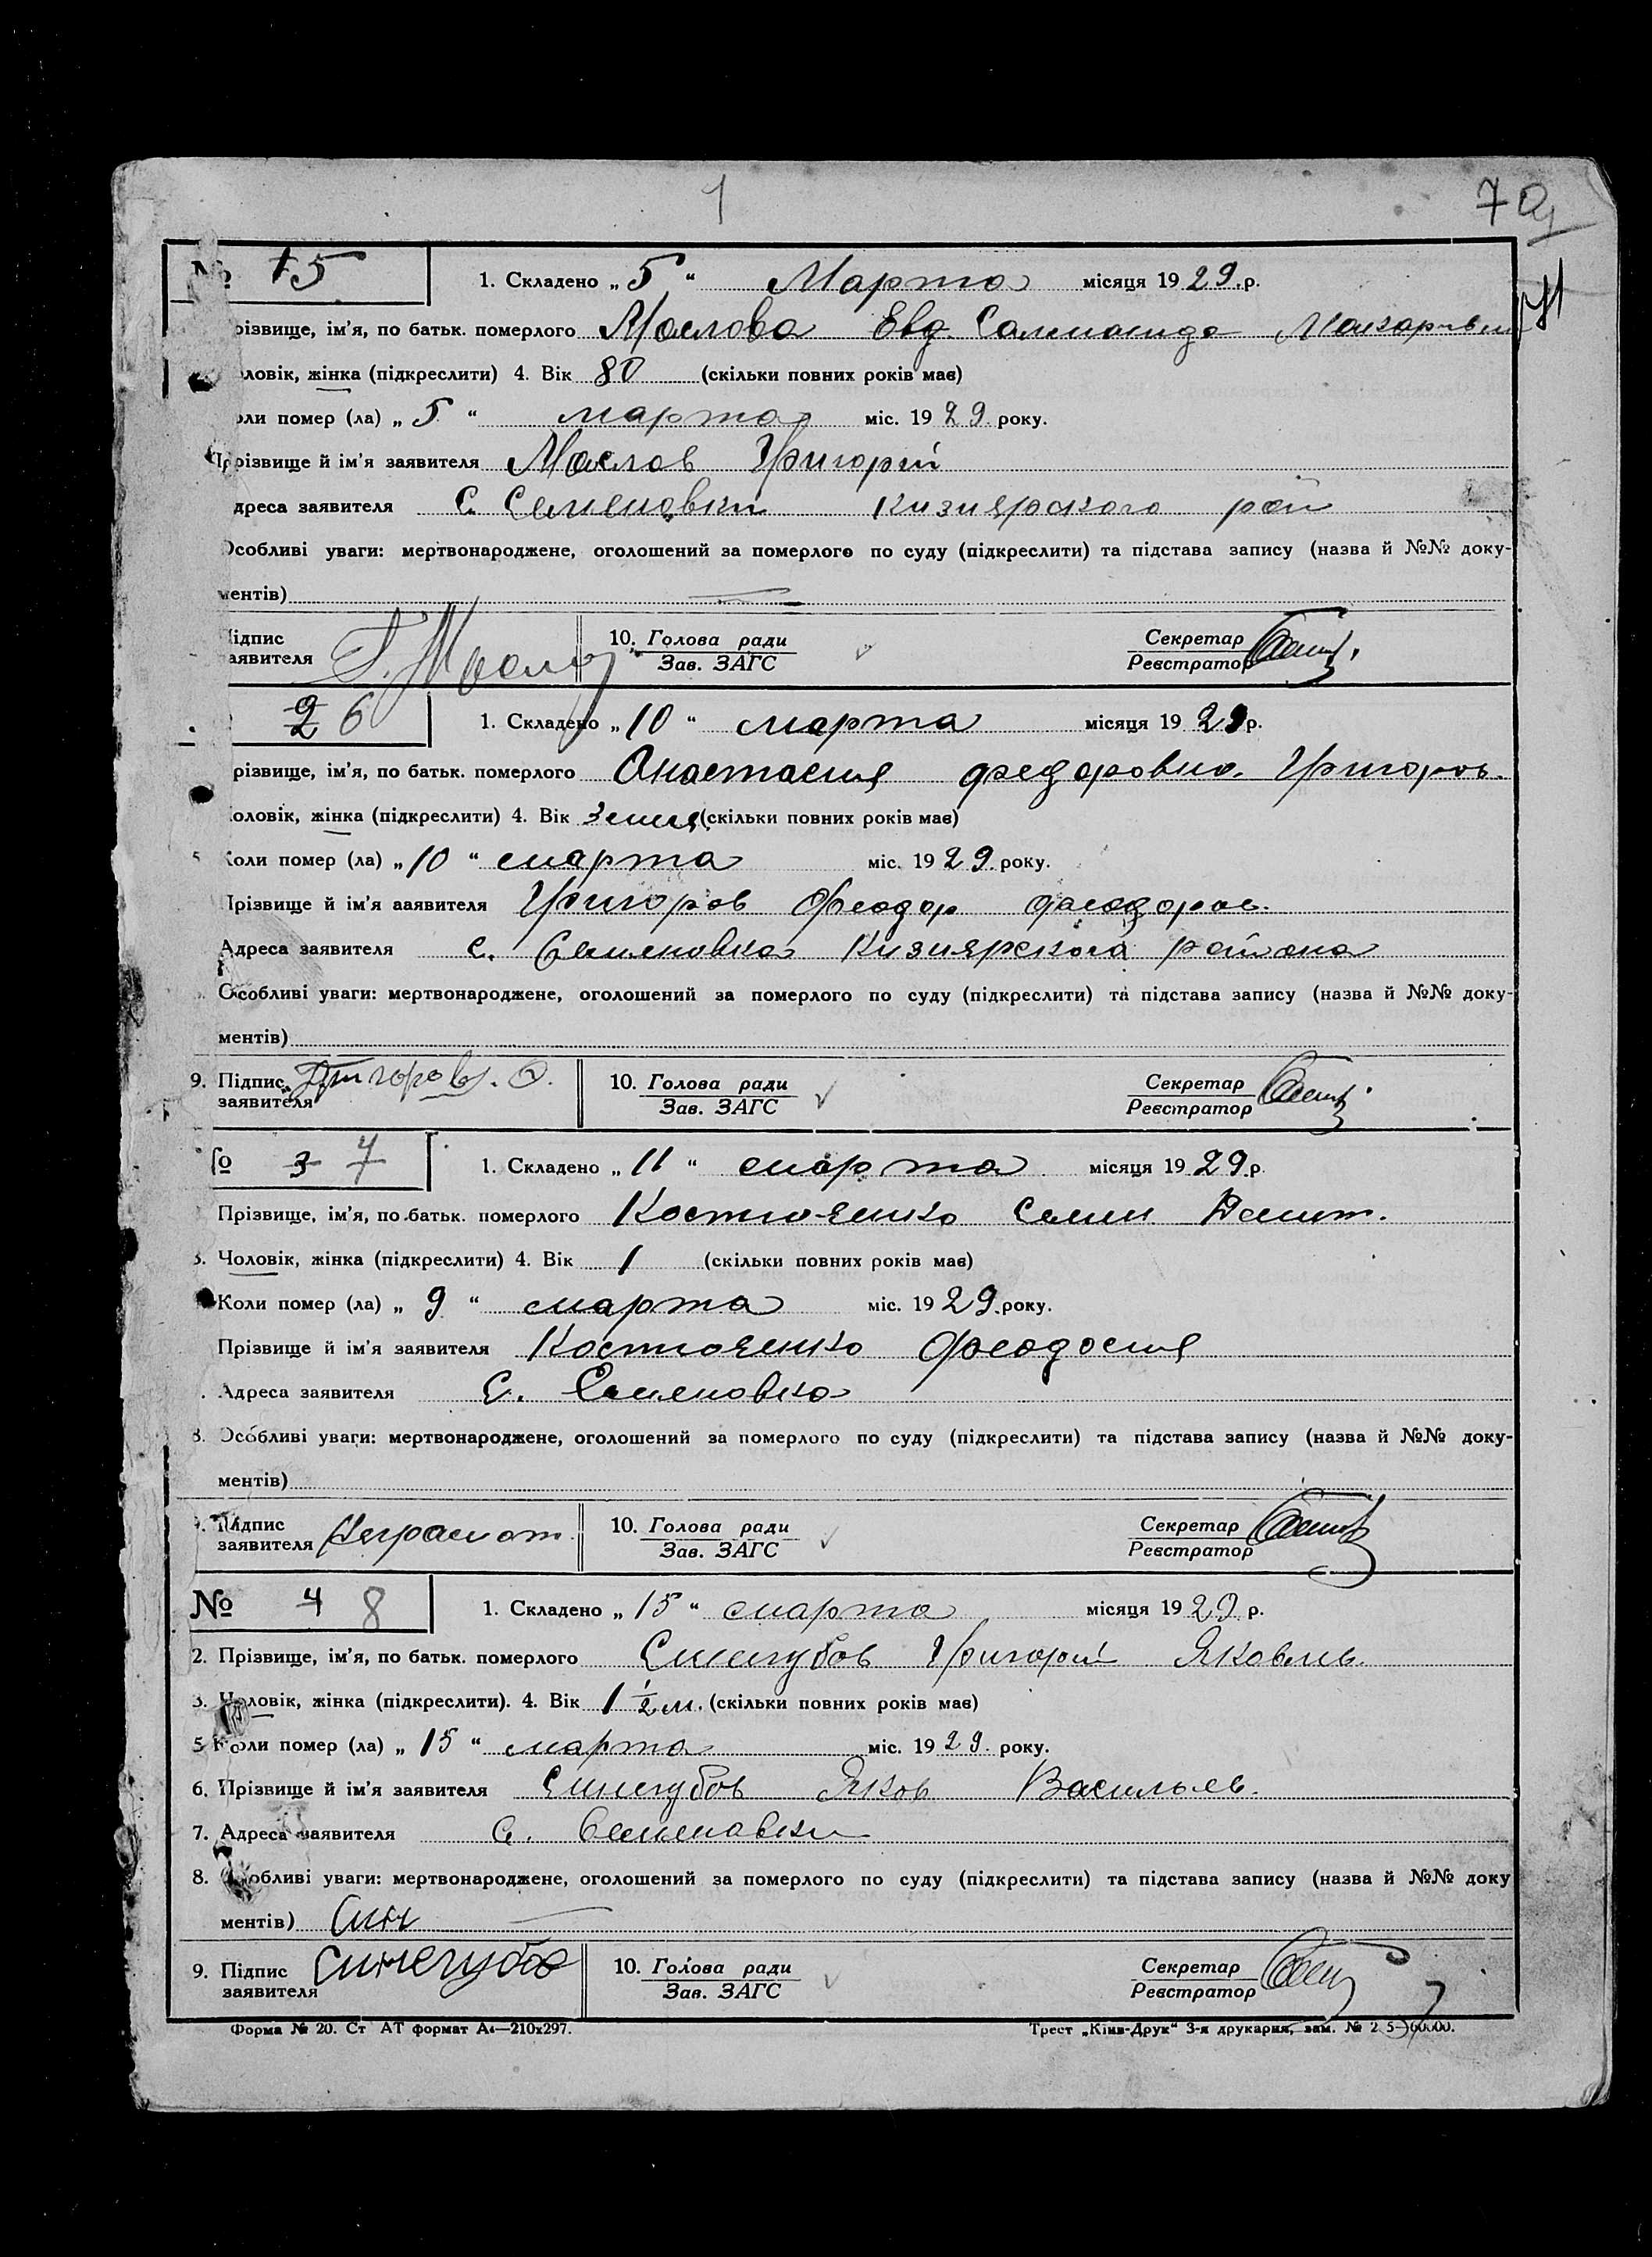 1 70
№ 1 5 1. Складено „ 5 “ Марта місяця 19 29. р.
різвище, ім’я, по батьк. померлого Маслова Евд. Маκаρ
ловік, жінка (підкреслити) 4. Вік 80 (скільки повних років має)
оли помер (ла) „ 5 “ марта міс. 19 29. року.
Прізвище й ім’я заявителя Маслов Григорій
дреса заявителя С. Семеновки Кизиярского рай
Особливі уваги: мертвонароджене, оголошений за померлого по суду (підкреслити) та підстава запису (назва й №№ доку-
ментів)
Підпис заявителя Г. Масло 10. Голова ради Зав. ЗАГС Секретар Реєстратор
2 6 1. Складено „ 10 “ марта місяця 19 29 р.
різвище, ім’я, по батьк. померлого Анастасия федоровна. Григоров.
оловік, жінка (підкреслити) 4. Вік (скільки повних років має)
5 Коли помер (ла) „ 10 “ марта міс. 19 29. року.
Прізвище й ім’я заявителя Григоров Феодор феодоров.
Адреса заявителя с. Семеновка Кизиярского района
Особливі уваги: мертвонароджене, оголошений за померлого по суду (підкреслити) та підстава запису (назва й №№ доку-
ментів)
9. Підпис заявителя Григоров. Ф. 10. Голова ради Зав. ЗАГС Секретар Реєстратор
№ 3 7 1. Складено „ 11 “ марта місяця 19 29 р.
Прізвище, ім’я, по батьк. померлого Костюченко Семен
3. Чоловік, жінка (підкреслити) 4. Вік 1 (скільки повних років має)
Коли помер (ла) „ 9 “ марта міс. 19 29. року.
Прізвище й ім’я заявителя Костюченко Феодосия
. Адреса заявителя С. Семеновка
8. Особливі уваги: мертвонароджене, оголошений за померлого по суду (підкреслити) та підстава запису (назва й №№ доку-
ментів)
9. Підпис заявителя Неграмот. 10. Голова ради Зав. ЗАГС Секретар Реєстратор
№ 4 8 1. Складено „ 15 “ марта місяця 19 29. р.
2. Прізвище, ім’я, по батьк. померлого Синегубов Григорій Яковлев.
3. Чоловік, жінка (підкреслити). 4. Вік 1 1/2 м. (скільки повних років має)
5 Коли помер (ла) „ 15 “ марта міс. 19 29. року.
6. Прізвище й ім’я заявителя Синегубов Яков Васильев.
7. Адреса заявителя С. Семеновки
8. Особливі уваги: мертвонароджене, оголошений за померлого по суду (підкреслити) та підстава запису (назва й №№ доку
ментів) Син
9. Підпис заявителя Синегубов 10. Голова ради Зав. ЗАГС Секретар Реєстратор
Форма № 20. Ст АТ формат А4—210х297. Трест „Київ-Друк“ 3-я друкарня, зам. №